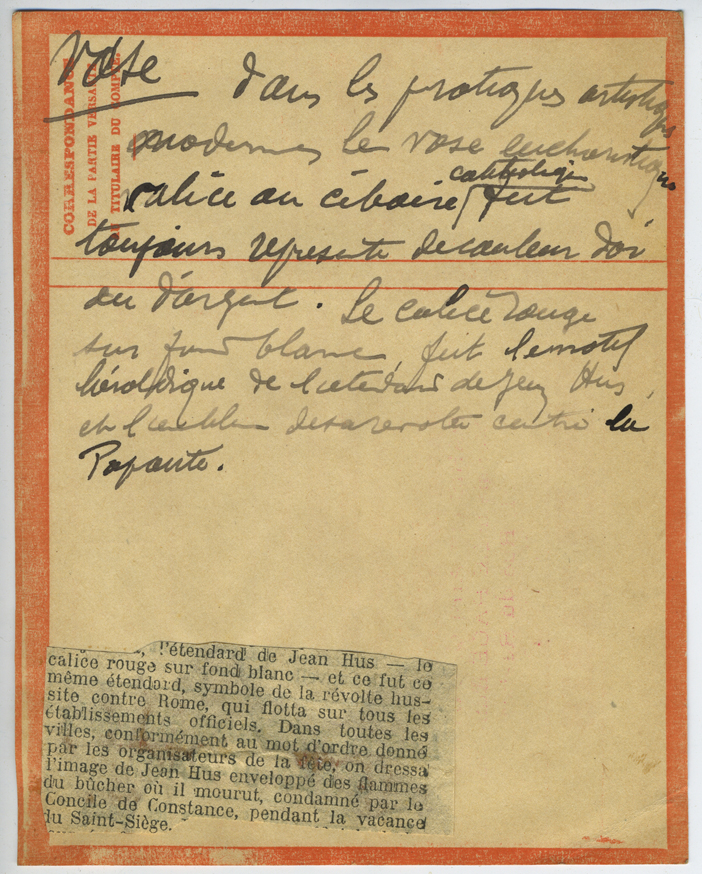 Vase
CORRESPONDANCE
DE LA PARTIE VERSANTE
TITULAIRE DU COMPTE.
Dans les pratiques artistiques
modernes le vase eucharistique
calice ou ciboire catholique fut
toujours représenté de couleur d'or
ou d'argent. Le calice rouge
sur fond blanc, fut le motif
héraldique de l'étendard de Jean Hus,
et l'emblème de sa révolte contre la
Papauté.
l'étendard de Jean Hus — le
calice rouge sur fond blanc — et ce fut ce
même étendard, symbole de la révolte hus-
site contre Rome, qui flotta sur tous les
établissements officiels. Dans toutes les
villes, conformément au mot d'ordre donné
par les organisateurs de la fête, on dressa
l'image de Jean Hus enveloppé des flammes
du bûcher où il mourut, condamné par le
Concile de Constance, pendant la vacance
du Saint-Siège.